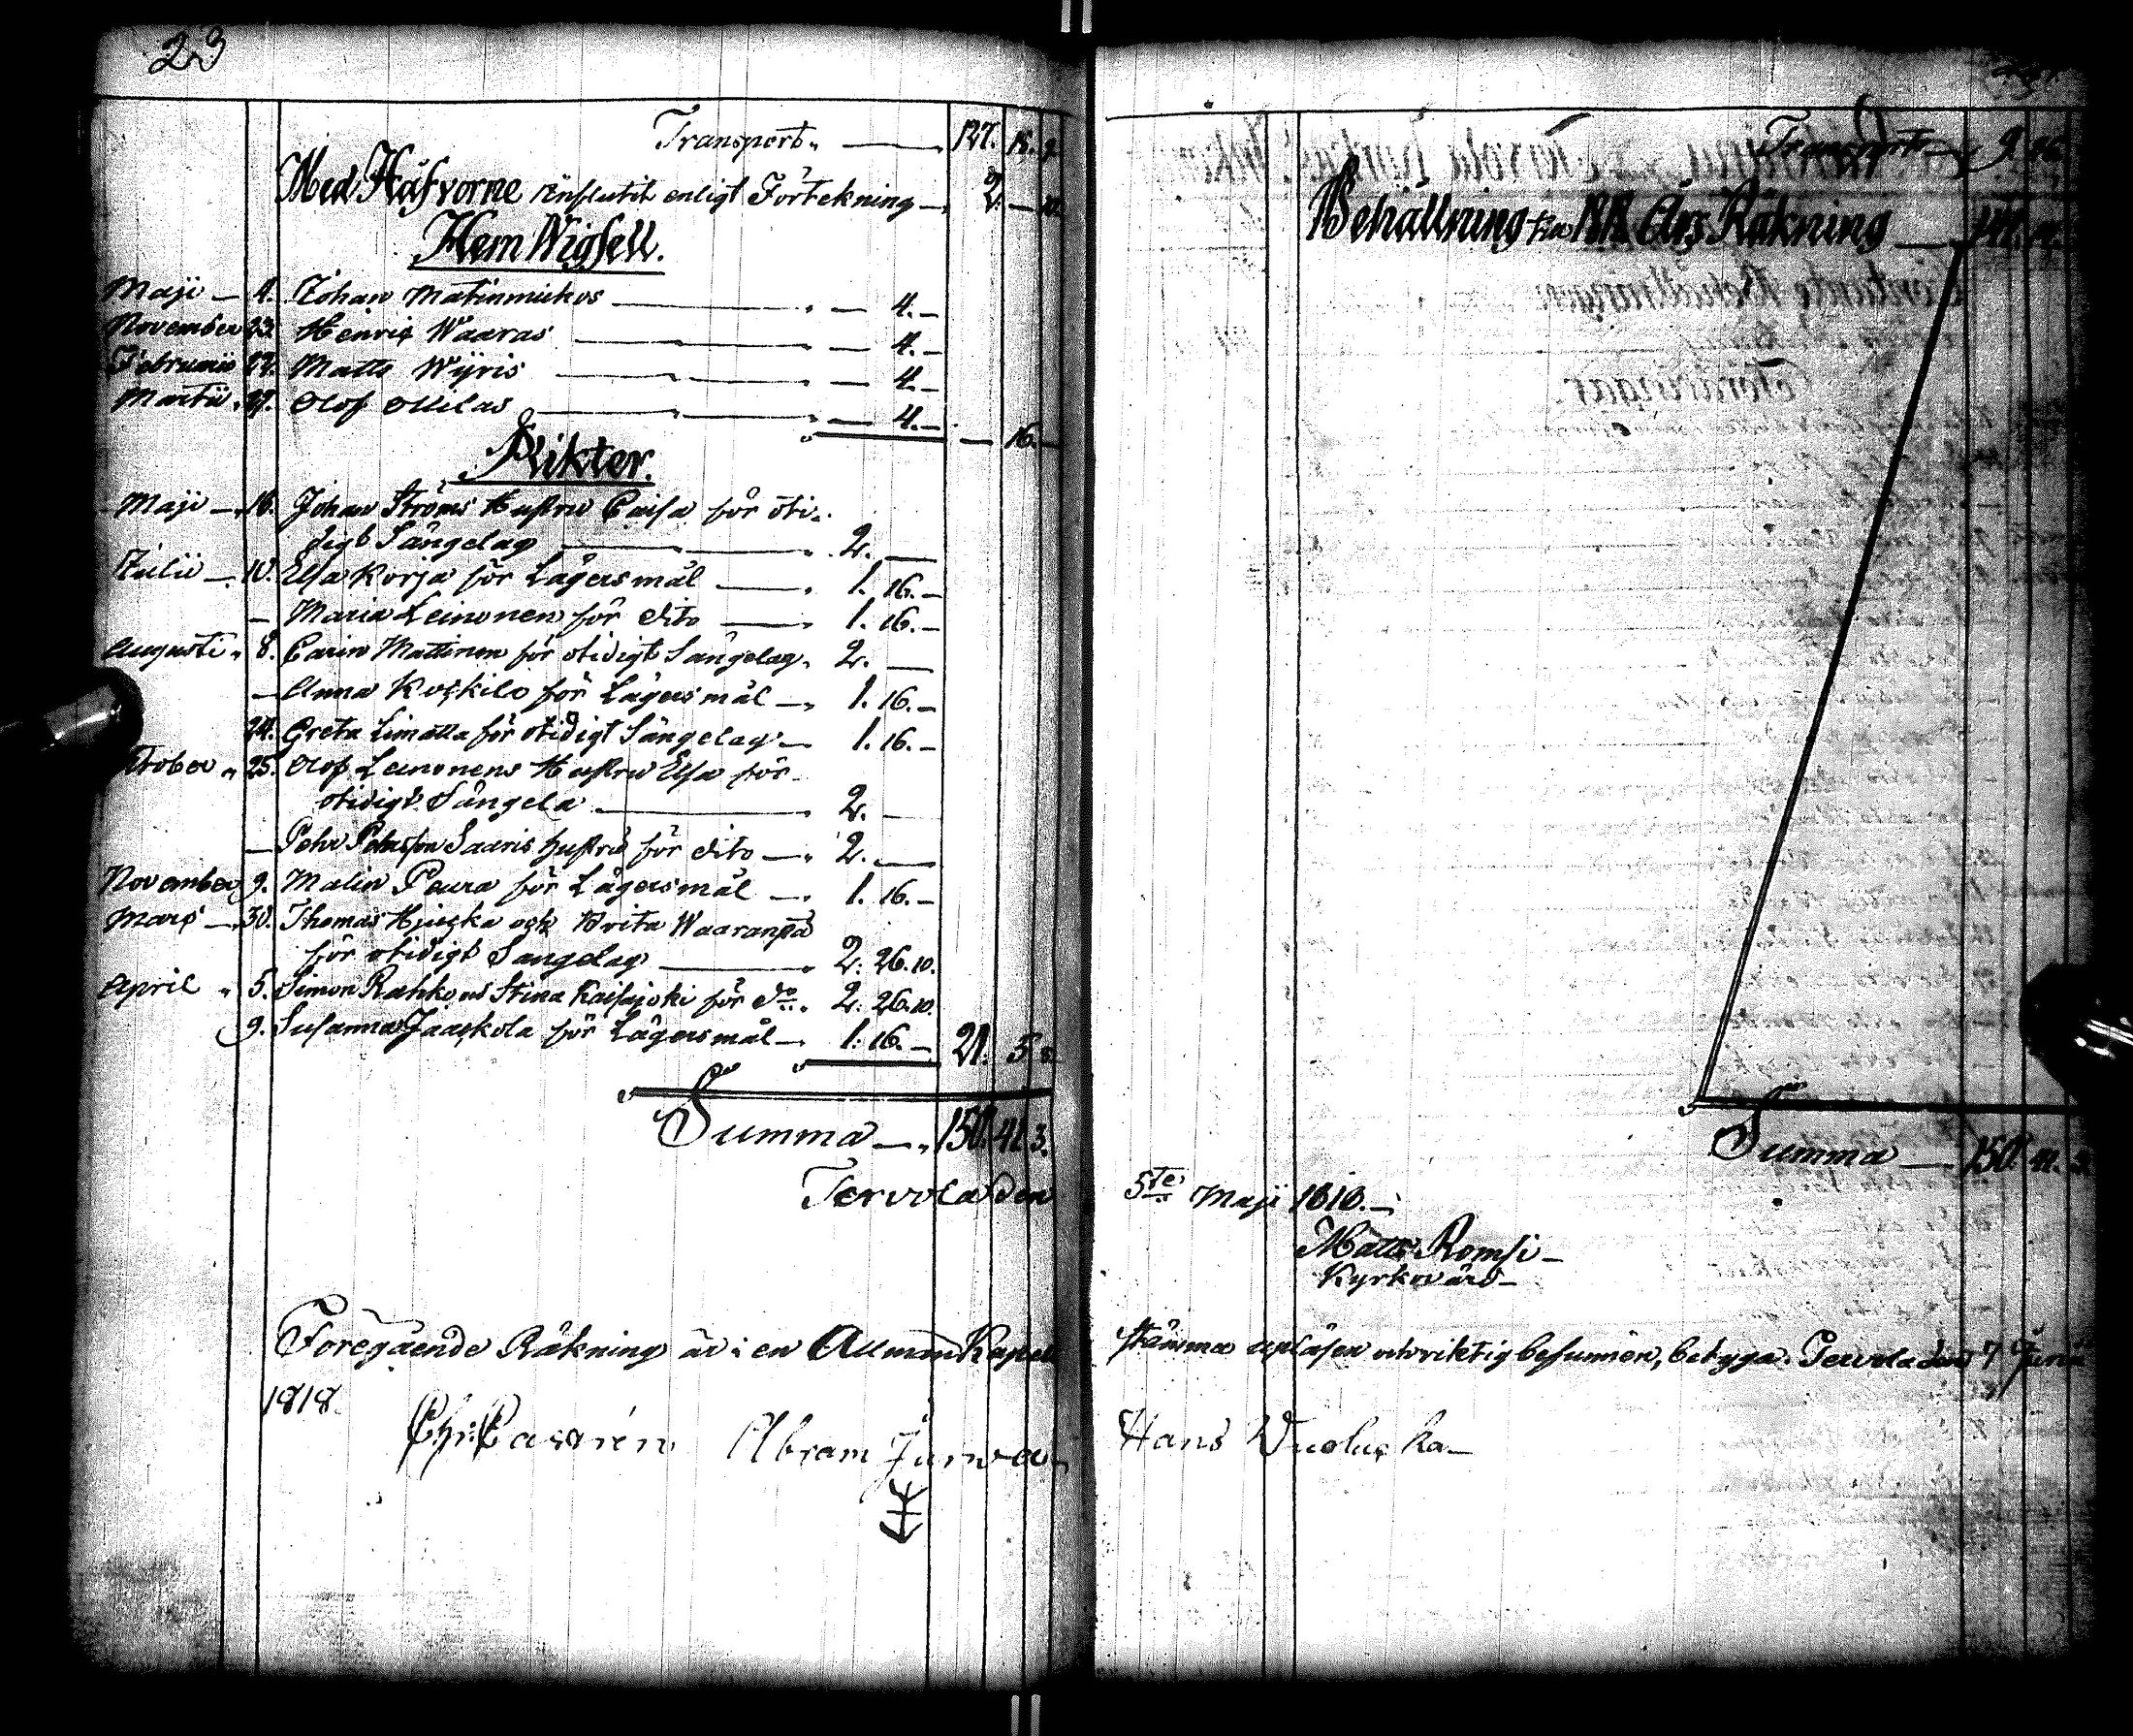 23
Transport 127. 15. 9
Med Håfvorne influtit enligt Förtekning 2. — 10.
Hem Wigsell.
Maji — 4. Johan Matinmickos — 4. —
November 23. Henric Waaras — 4. —
Februarii 22. Matts Wÿris — 4. —
Martii 29. Olof Ollilas — 4. — — 16. —
Plikter.
Maji — 18. Johan Ströms Hustru Caisa för oti-
digt Sängelag 2. —
Julii — 10. Elsa Korja för Lägersmål 1. 16. —
— Maria Leinonen för dito 1. 16. —
Augusti 8. Carin Mattinen för otidigt Sängelag 2. —
— Anna Koskilo för Lägersmål 1. 16. —
24. Greta Limatta för otidigt Sängelag 1. 16. —
October 25. Olof Leinonens Hustru Elsa för
otidigt Sängela 2. —
— Pehr Pehrsson Saaris hustru för dito 2. —
November 9. Malin Peura för Lägersmål 1. 16. —
Mars — 30. Thomas Hjucka och Brita Waaranpä
för otidigt Sängelag 2: 26. 10.
April 5. Simon Rahko och Stina Kaisajoki för do 2: 26. 10.
9. Susanna Jaaskola för Lägersmål 1: 16. — 21. 5. 8.
Summa 150. 41. 3.
Tervola den
Föregående Räkning är i en Allmän Kapell
1818.
Chr: Castrén Abram Jurva
Transport 9. 26.
Behållning från 1818 Års Räkning 141.
Summa 150. 41. 3.
5te Maji 1818.
Matts Romsi
Kyrkovärd
stämma uplasen och riktig befunnen, betyga. Tervola den 7 Junii
Hans Vuoluska